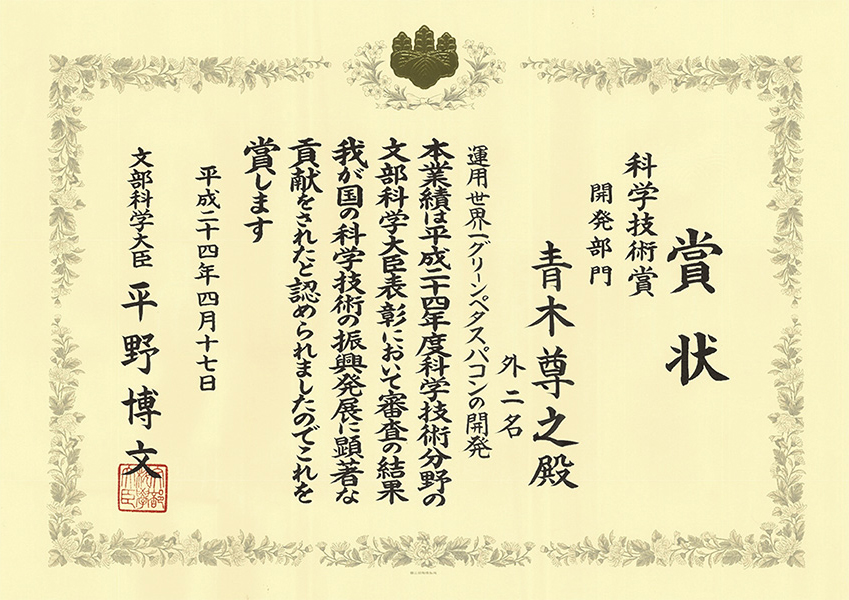 賞状
科学技術賞
開発部門
青木尊之殿
外二名
運用世界一グリーンペタスパコンの開発
本業績は平成二十四年度科学技術分野の
文部科学大臣表彰において審査の結果
我が国の科学技術の振興発展に顕著な
貢献をされたと認められましたのでこれを
賞します
平成二十四年四月十七日
文部科学大臣 平野博文